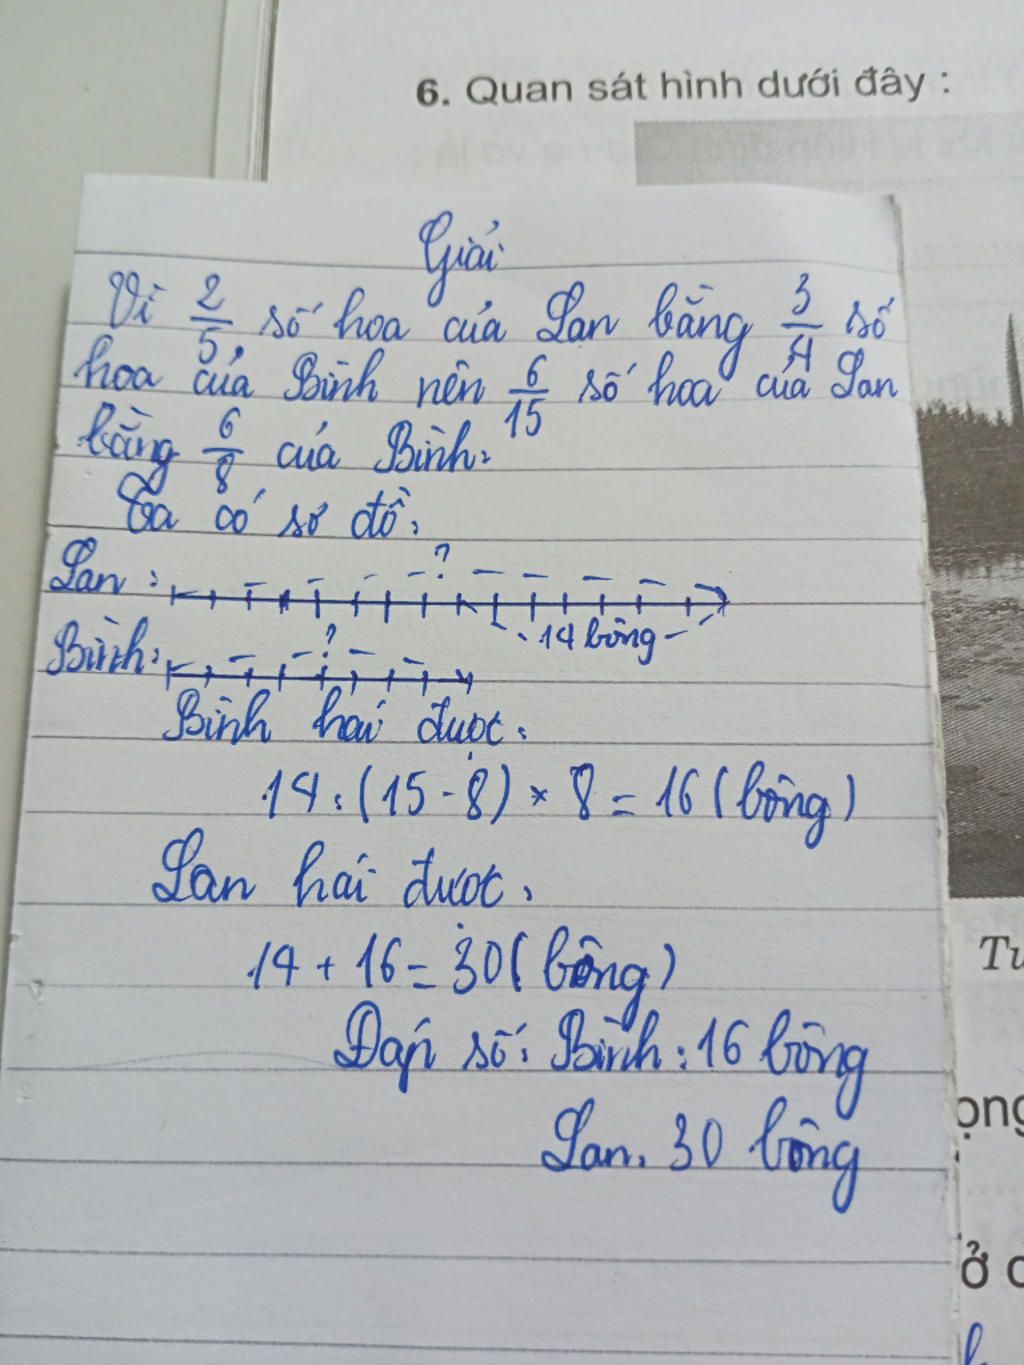 6. Quan sát hình dưới đây :
Giải
Vì 2/5 số hoa của Lan bằng 3/4 số
hoa của Bình nên 6/15 số hoa của Lan
bằng 6/8 của Bình.
Ta có sơ đồ:
?
Lan :
14 bông
?
Bình:
Bình hái được:
14 : (15 - 8) × 8 = 16 (bông)
Lan hái được:
14 + 16 = 30 (bông)
Đáp số: Bình : 16 bông
Lan: 30 bông